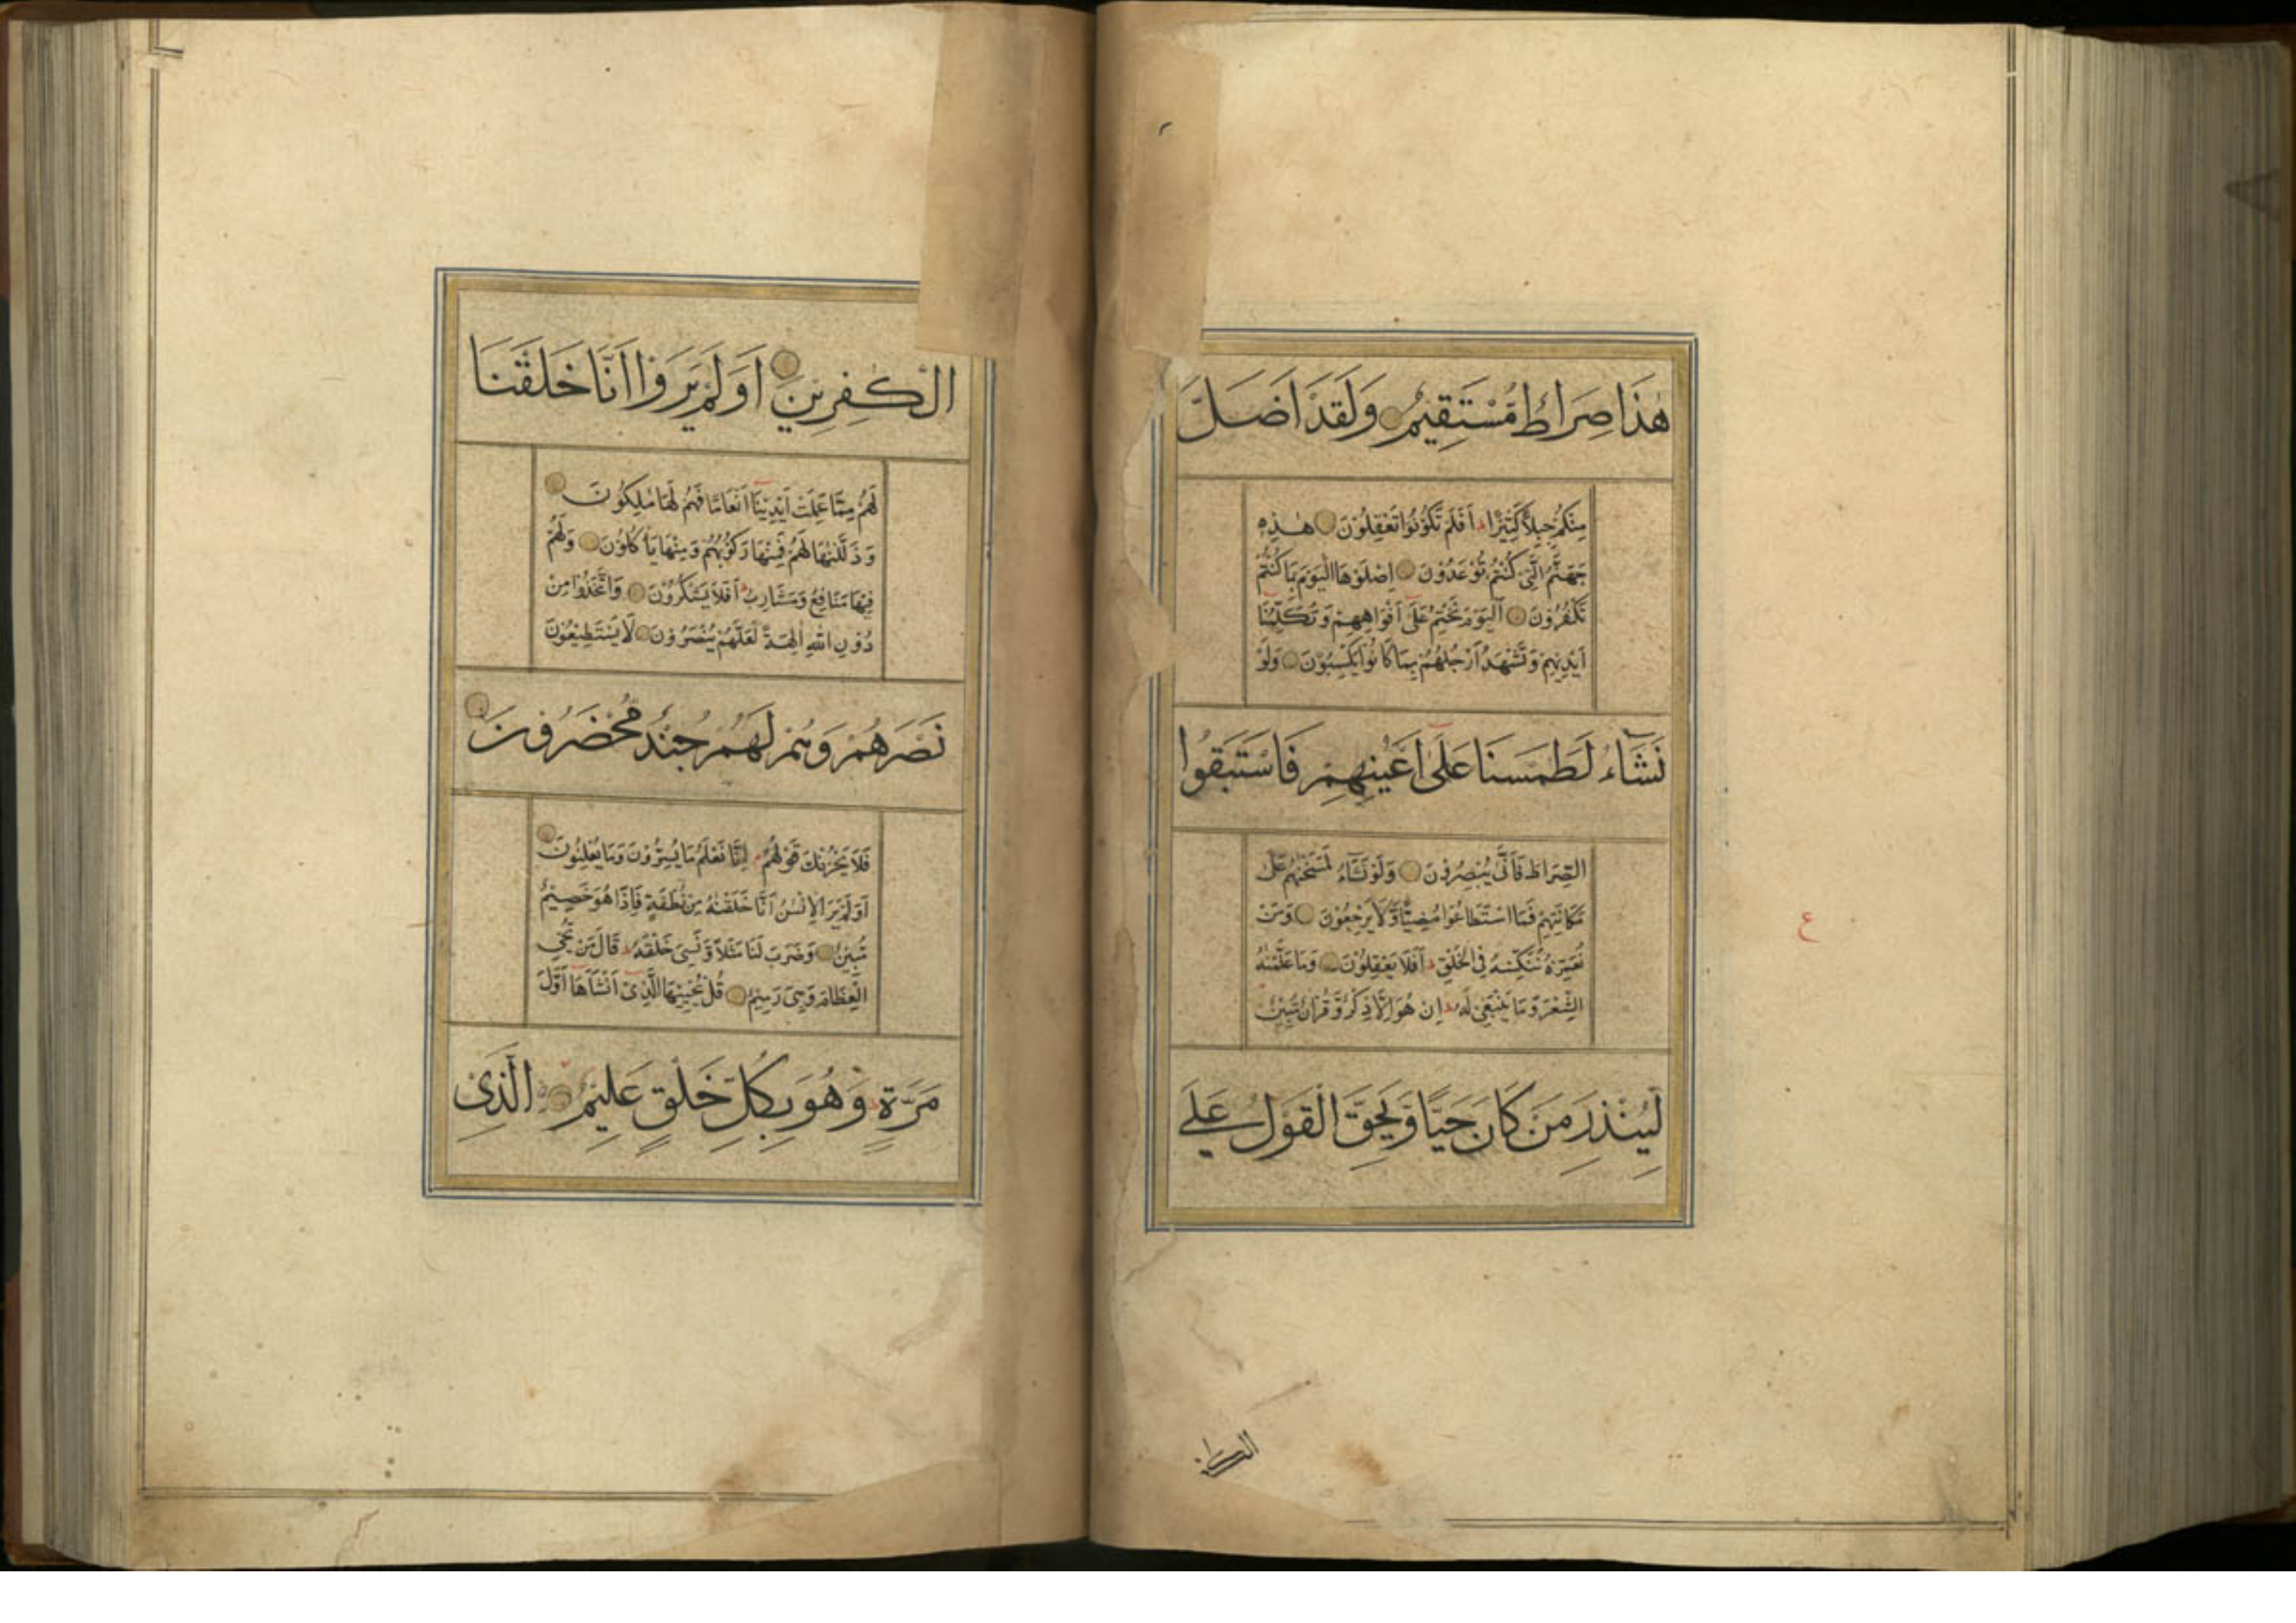 هٰذَا صِرَاطٌ مُّسْتَقِيْمٌ وَلَقَدْ اَضَلَّ
مِنْكُمْ جِبِلًّا كَثِيْرًا اَفَلَمْ تَكُوْنُوْا تَعْقِلُوْنَ هٰذِهٖ
جَهَنَّمُ الَّتِىْ كُنْتُمْ تُوْعَدُوْنَ اِصْلَوْهَا الْيَوْمَ بِمَا كُنْتُمْ
تَكْفُرُوْنَ اَلْيَوْمَ نَخْتِمُ عَلٰٓى اَفْوَاهِهِمْ وَتُكَلِّمُنَآ
اَيْدِيْهِمْ وَتَشْهَدُ اَرْجُلُهُمْ بِمَا كَانُوْا يَكْسِبُوْنَ وَلَوْ
نَشَآءُ لَطَمَسْنَا عَلٰٓى اَعْيُنِهِمْ فَاسْتَبَقُوا
الصِّرَاطَ فَاَنّٰى يُبْصِرُوْنَ وَلَوْ نَشَآءُ لَمَسَخْنٰهُمْ عَلٰى
مَكَانَتِهِمْ فَمَا اسْتَطَاعُوْا مُضِيًّا وَّلَا يَرْجِعُوْنَ وَمَنْ
نُّعَمِّرْهُ نُنَكِّسْهُ فِى الْخَلْقِ اَفَلَا يَعْقِلُوْنَ وَمَا عَلَّمْنٰهُ
الشِّعْرَ وَمَا يَنْبَغِىْ لَهٗ اِنْ هُوَ اِلَّا ذِكْرٌ وَّقُرْاٰنٌ مُّبِيْنٌ
لِّيُنْذِرَ مَنْ كَانَ حَيًّا وَّيَحِقَّ الْقَوْلُ عَلَى
ع
الْكٰفِرِيْنَ اَوَلَمْ يَرَوْا اَنَّا خَلَقْنَا
لَهُمْ مِّمَّا عَمِلَتْ اَيْدِيْنَآ اَنْعَامًا فَهُمْ لَهَا مٰلِكُوْنَ
وَذَلَّلْنٰهَا لَهُمْ فَمِنْهَا رَكُوْبُهُمْ وَمِنْهَا يَاْكُلُوْنَ وَلَهُمْ
فِيْهَا مَنَافِعُ وَمَشَارِبُ اَفَلَا يَشْكُرُوْنَ وَاتَّخَذُوْا مِنْ
دُوْنِ اللّٰهِ اٰلِهَةً لَّعَلَّهُمْ يُنْصَرُوْنَ لَا يَسْتَطِيْعُوْنَ
نَصْرَهُمْ وَهُمْ لَهُمْ جُنْدٌ مُّحْضَرُوْنَ
فَلَا يَحْزُنْكَ قَوْلُهُمْ اِنَّا نَعْلَمُ مَا يُسِرُّوْنَ وَمَا يُعْلِنُوْنَ
اَوَلَمْ يَرَ الْاِنْسٰنُ اَنَّا خَلَقْنٰهُ مِنْ نُّطْفَةٍ فَاِذَا هُوَ خَصِيْمٌ
مُّبِيْنٌ وَضَرَبَ لَنَا مَثَلًا وَّنَسِىَ خَلْقَهٗ قَالَ مَنْ يُّحْىِ
الْعِظَامَ وَهِىَ رَمِيْمٌ قُلْ يُحْيِيْهَا الَّذِىْٓ اَنْشَاَهَآ اَوَّلَ
مَرَّةٍ وَهُوَ بِكُلِّ خَلْقٍ عَلِيْمٌ الَّذِىْ